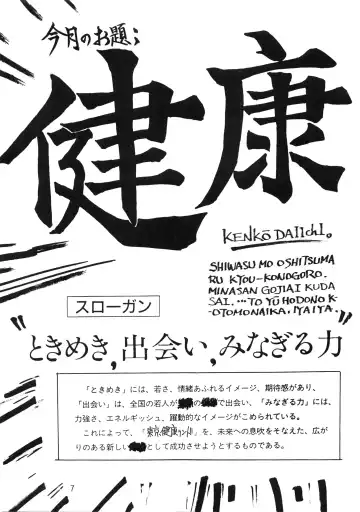 今月のお題;
健康
KENKŌ DAIICHI。
SHIWASU MO OSHITSUMA
RU KYOU-KONOGORO.
MINASAN GOJIAI KUDA
SAI. ...TO YŪ HODONO K
-OTOMONAIKA, IYAIYA.
スローガン
"ときめき,出会い,みなぎる力"
「ときめき」には、若さ、情緒あふれるイメージ、期待感があり、
「出会い」は、全国の若人が の で出会い、「みなぎる力」には、
力強さ、エネルギッシュ、躍動的なイメージがこめられている。
これによって、「東京健康ランド」を、未来への息吹をそなえた、広が
りのある新しい として成功させようとするものである。
7